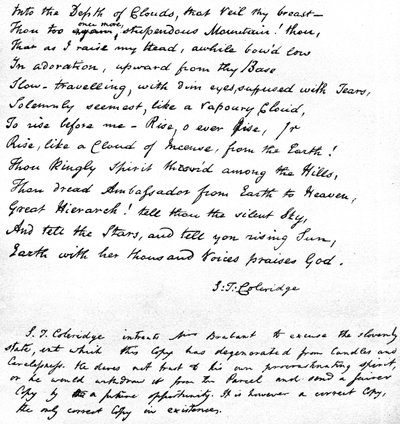 Into the Depth of Clouds, that Veil thy breast—
Thou too again, once more, stupendous Mountain! thou,
That as I raise my head, awhile bow'd low
In adoration, upward from thy Base
Slow-travelling, with dim eyes suffused with Tears,
Solemnly seemest, like a Vapoury Cloud,
To rise before me—Rise, o ever Rise,
Rise, like a Cloud of Incense, from the Earth!
Thou Kingly Spirit thron'd among the Hills,
Thou dread Ambassador from Earth to Heaven,
Great Hierarch! tell thou the silent Sky,
And tell the Stars, and tell yon rising Sun,
Earth with her thousand Voices praises God.
S. T. Coleridge
S. T. Coleridge intreats Mrs Brabant to excuse the slovenly
state, into which this Copy has degenerated from Candles and
Carelessness. He dares not trust to his own procrastinating spirit,
or he would withdraw it from the Parcel and send a fairer
Copy by a future opportunity. It is however a correct Copy,
the only correct Copy in existence.